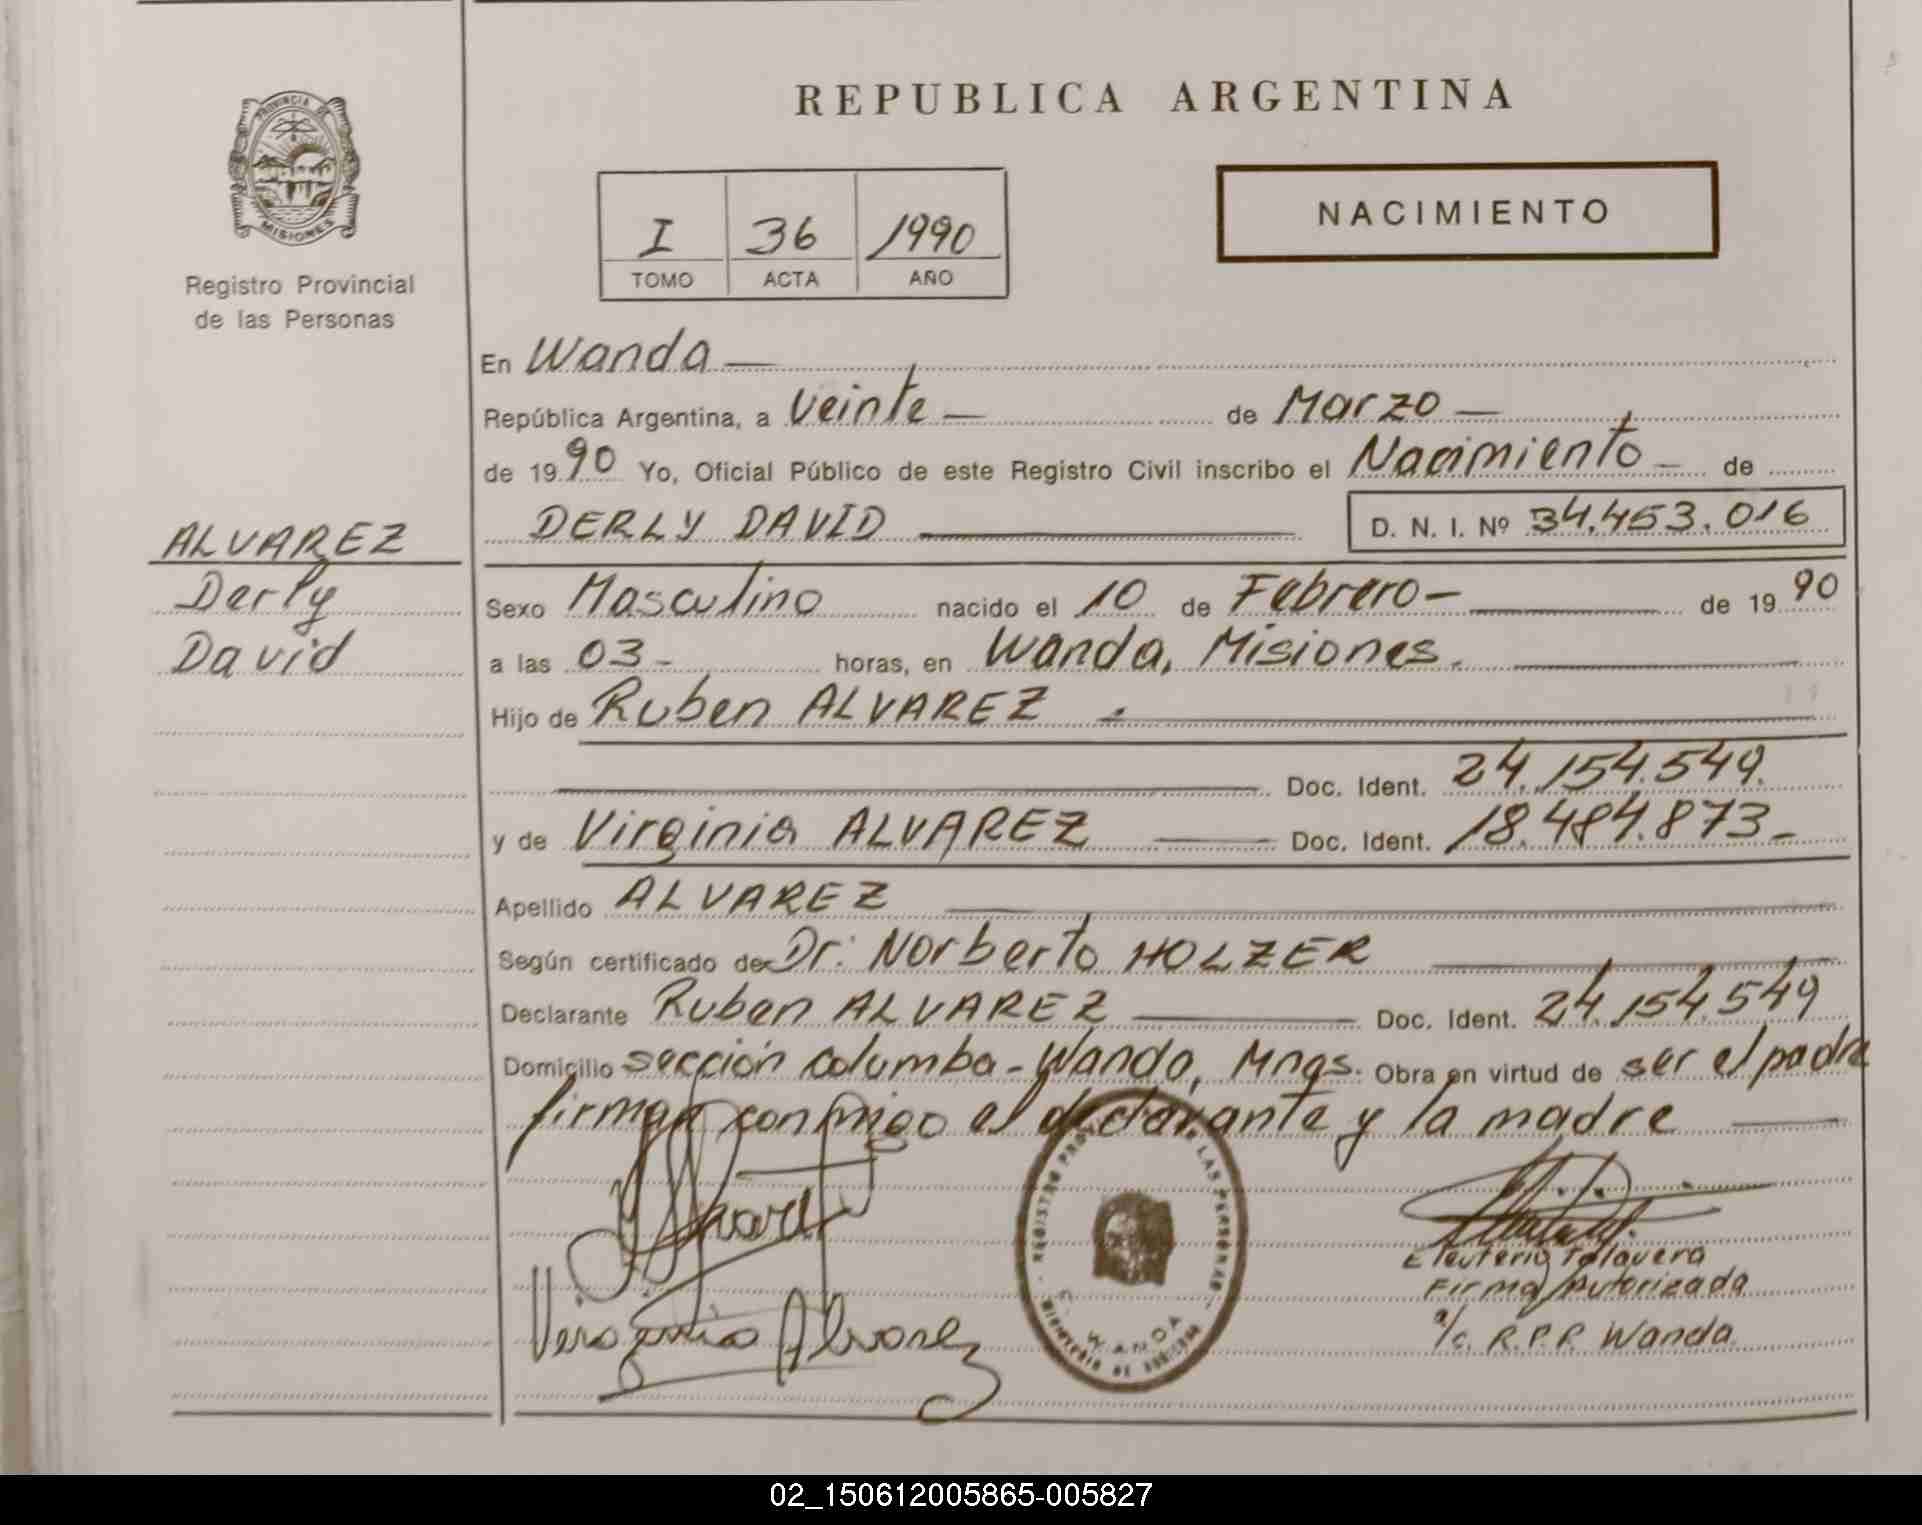 REPUBLICA ARGENTINA
PROVINCIA DE
MISIONES
Registro Provincial
de las Personas
I 36 1990
TOMO ACTA AÑO
NACIMIENTO
En Wanda —
República Argentina, a Veinte — de Marzo —
de 1990 Yo, Oficial Público de este Registro Civil inscribo el Nacimiento — de
DERLY DAVID D. N. I. Nº 34.453.016
ALVAREZ
Derly
David
Sexo Masculino nacido el 10 de Febrero — de 1990
a las 03 - horas, en Wanda, Misiones.
Hijo de Ruben ALVAREZ .
Doc. Ident. 24.154.549.
y de Virginia ALVAREZ Doc. Ident. 18.484.873-
Apellido ALVAREZ
Según certificado de Dr: Norberto HOLZER
Declarante Ruben ALVAREZ Doc. Ident. 24.154.549
Domicilio sección Columba - Wanda, Mnes. Obra en virtud de ser el padre
firman conmigo el declarante y la madre
REGISTRO LAS PERSONAS
WANDA
Eleuterio Talavera
Firma Autorizada
a/c. R.P.P. Wanda.
Alvarez
02_150612005865-005827